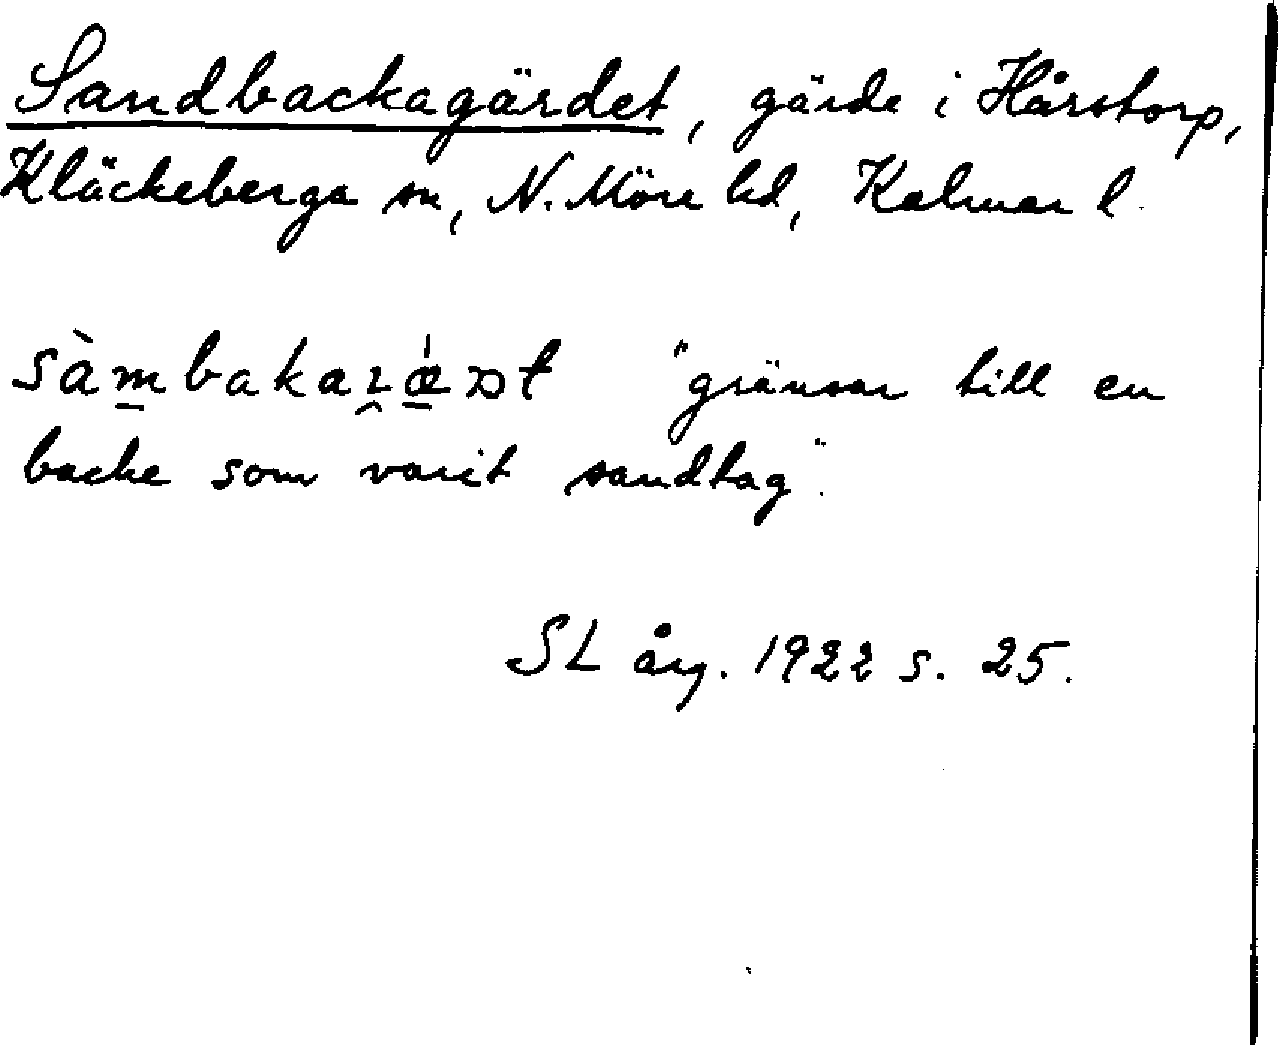 Sandbackagärdet, gärde i Hårstorp,
Kläckeberga sn, N. Möre hd, Kalmar l.
"gränsar till en
backe som varit sandtag".
SL årg. 1922 s. 25.